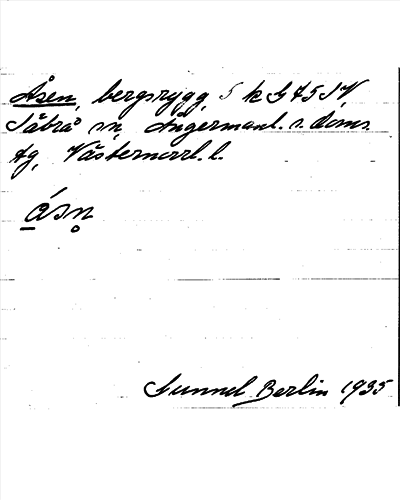 Åsen, bergsrygg, 5 k G 75 SV,
Säbrå sn, Ångermanl. s. doms.
tg, Västernorrl. l.
åsn̥
Gunnel Berlin 1935